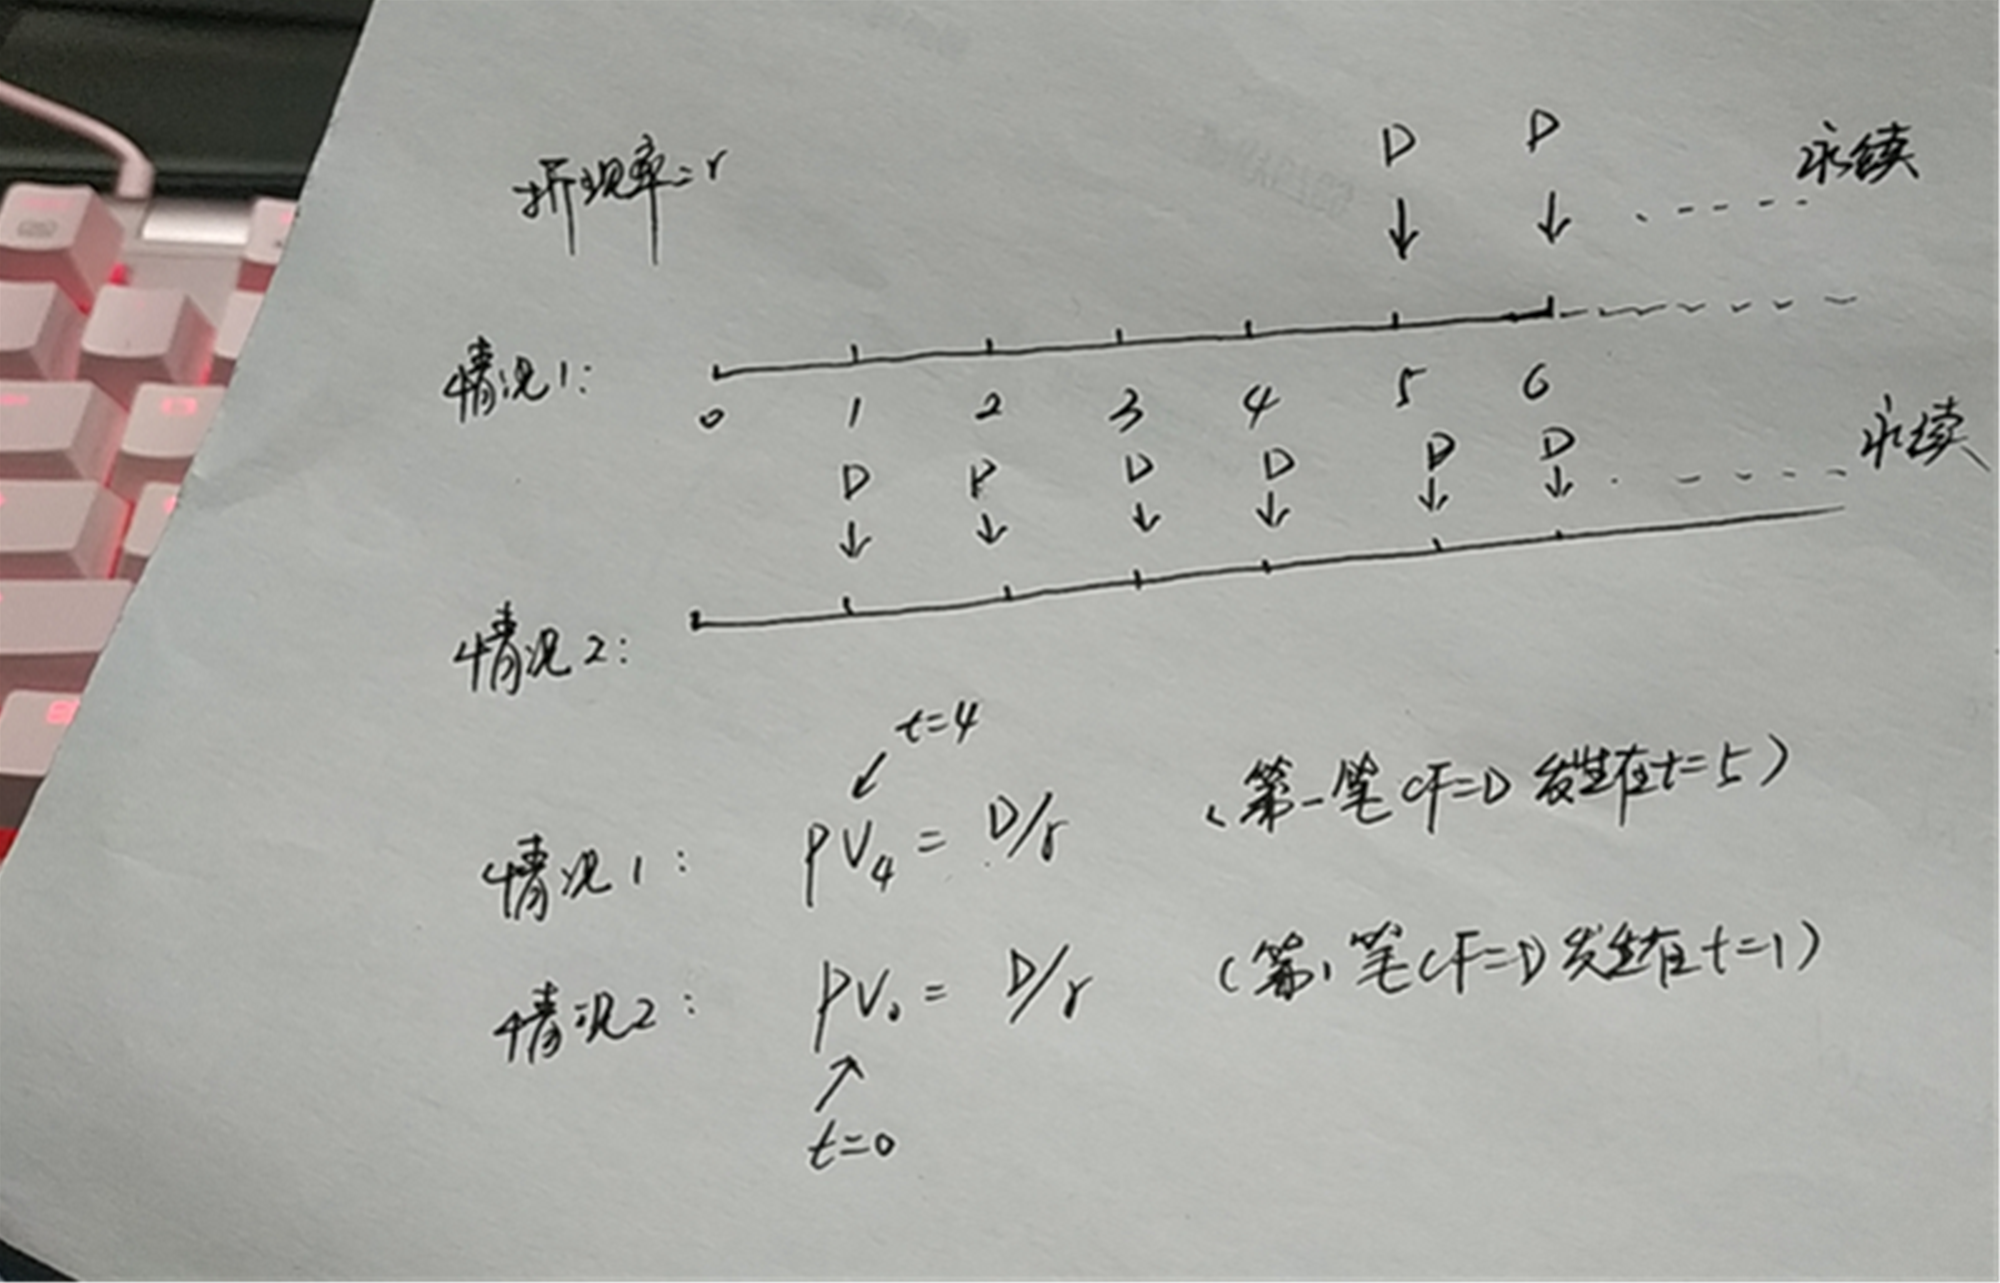 D D
永续
折现率=r
情况1:
0 1 2 3 4 5 6
D D D D D D
永续
情况2:
t=4
情况1: PV₄ = D/r (第一笔CF=D 发生在t=5)
情况2: PV₀ = D/r (第1笔CF=D 发生在t=1)
t=0